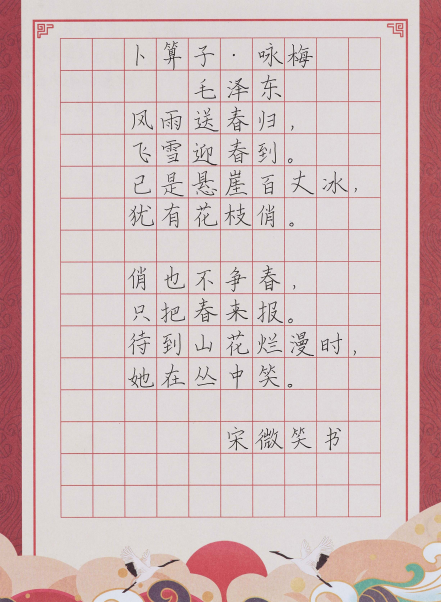 卜算子·咏梅
毛泽东
风雨送春归，
飞雪迎春到。
已是悬崖百丈冰，
犹有花枝俏。
俏也不争春，
只把春来报。
待到山花烂漫时，
她在丛中笑。
宋微笑书